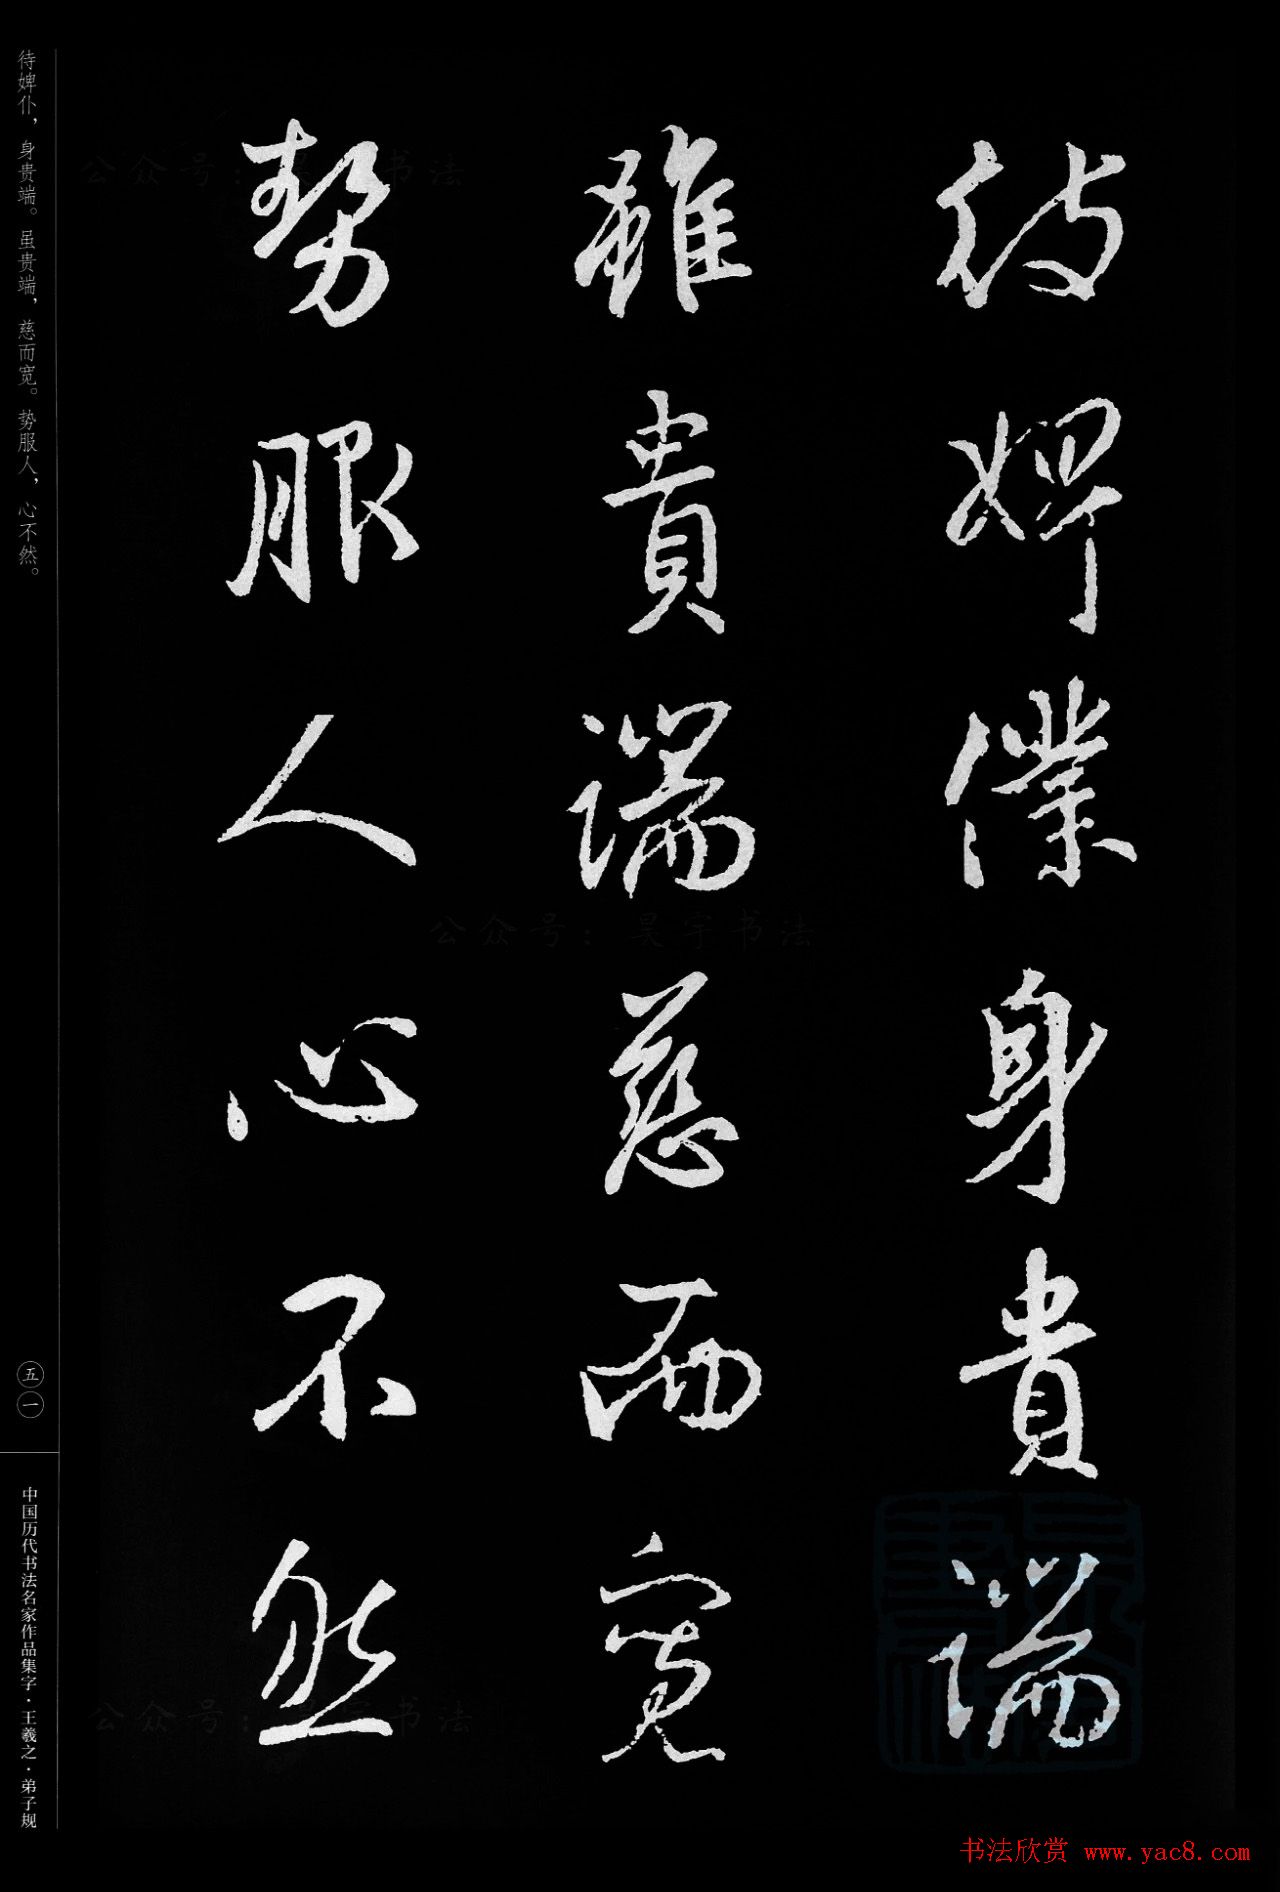 待婢僕身貴端
雖貴端慈而寬
勢服人心不然
待婢仆，身贵端。虽贵端，慈而宽。势服人，心不然。
五一
中国历代书法名家作品集字·王羲之·弟子规
公众号：昊宇书法
公众号：昊宇书法
公众号：昊宇书法
书法欣赏 www.yac8.com